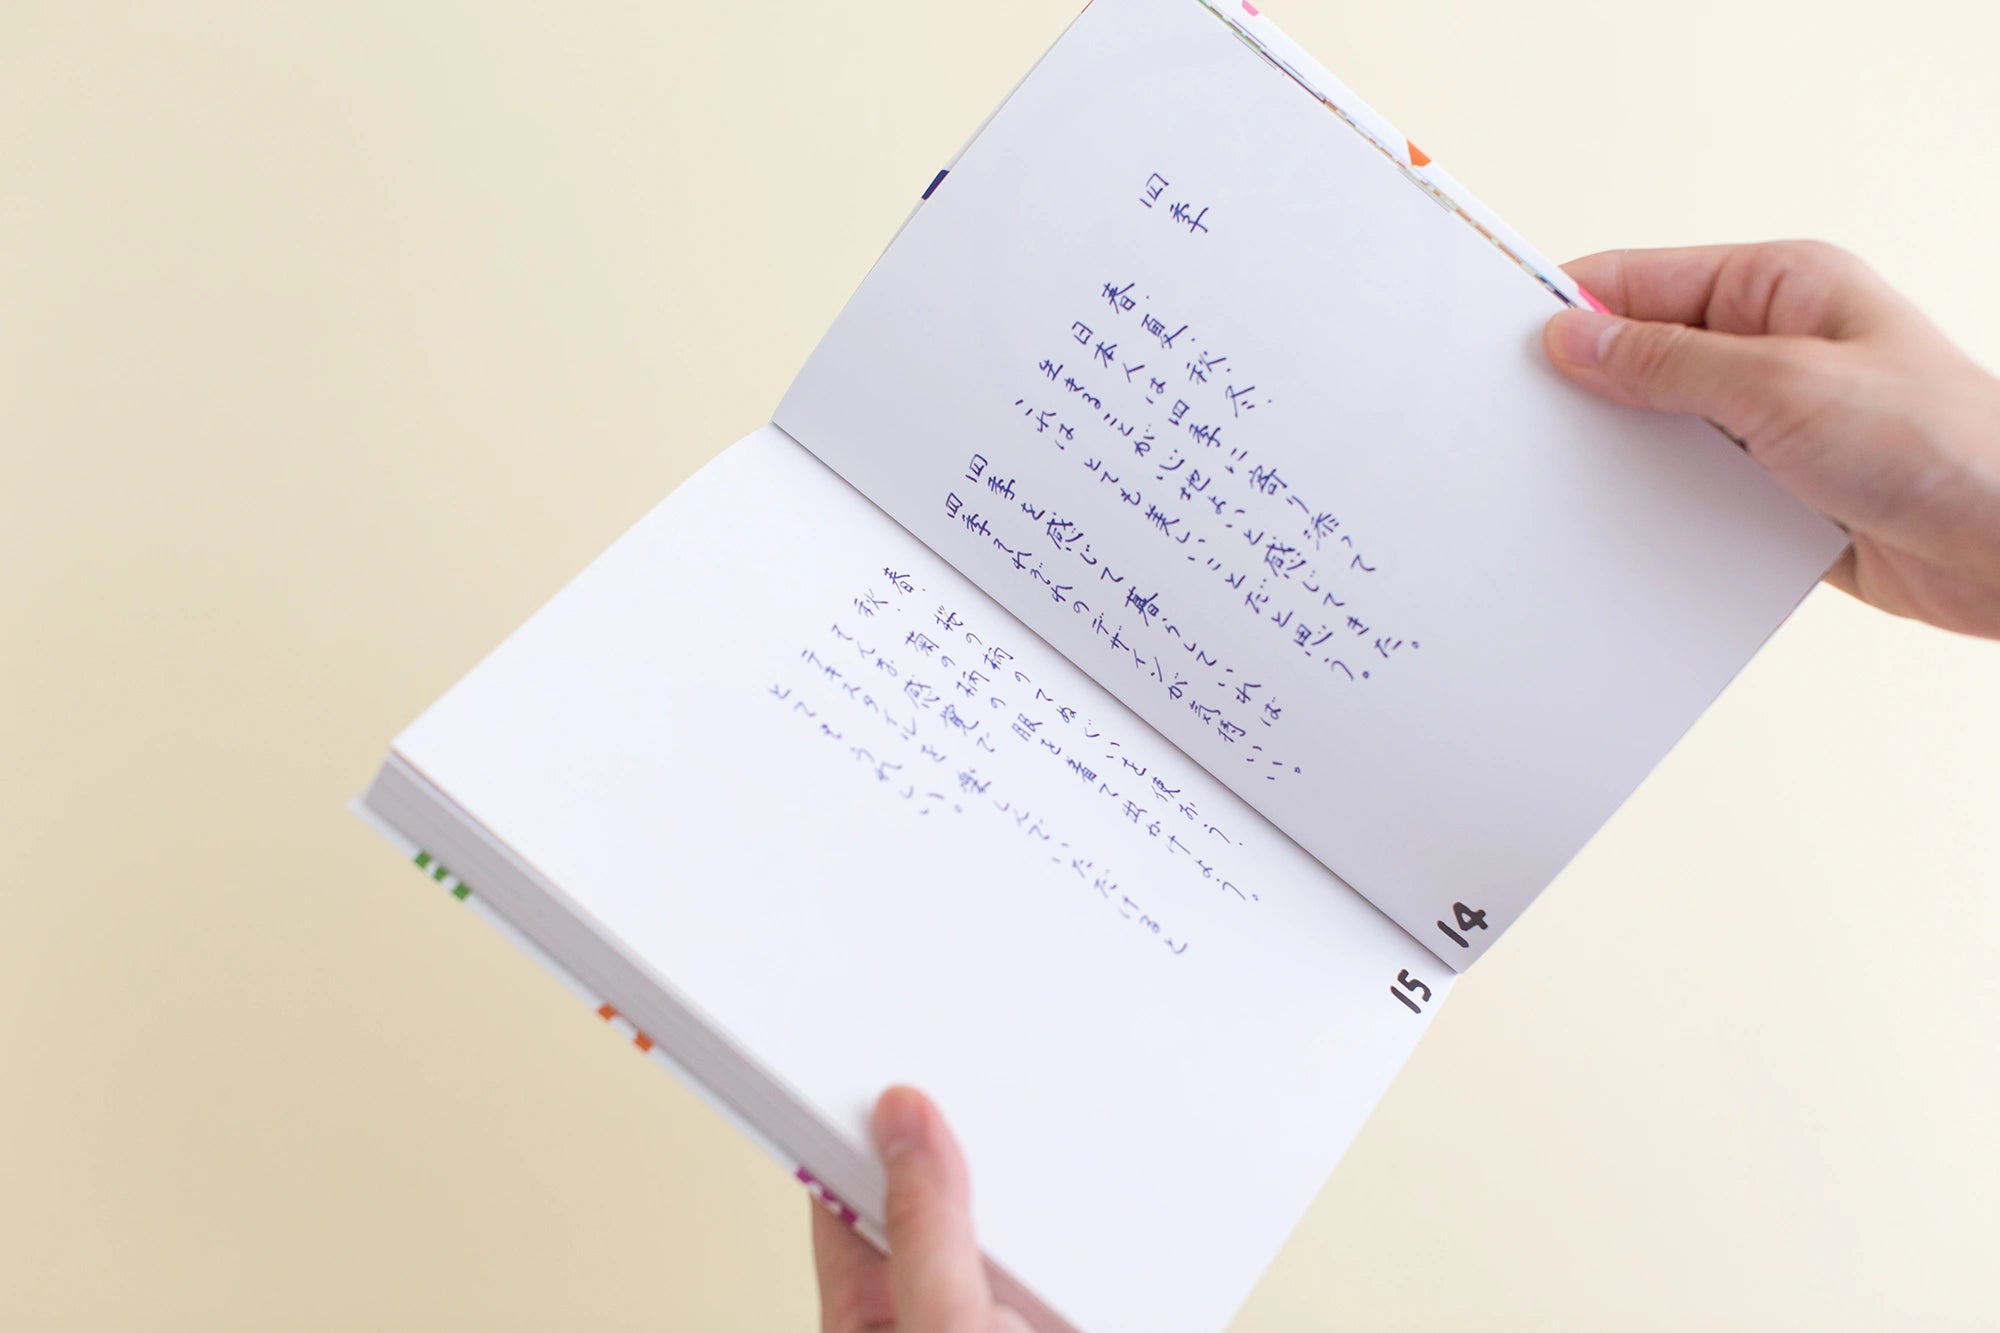 四季
春. 夏. 秋. 冬.
日本人は四季に寄り添って
生きることが心地よいと感じてきた。
これはとても美しいことだと思う。
四季を感じて暮らしていれば
四季それぞれのデザインが気持いい。
春. 桜の柄のてぬぐいを使おう.
秋. 菊の柄の服を着て出かけよう。
そんな感覚で
テキスタイルを楽しんでいただけると
とてもうれしい。
14
15